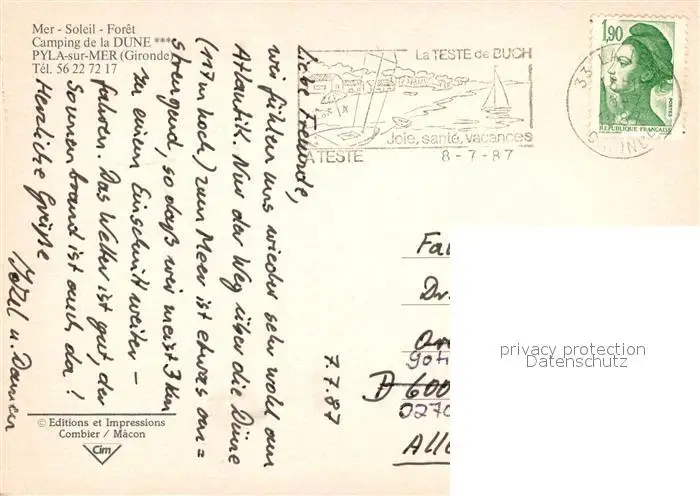 Mer - Soleil - Forêt
Camping de la DUNE ***
PYLA-sur-MER (Gironde)
Tél. 56 22 72 17
La TESTE de BUCH
Joie, santé, vacances
LA TESTE
8-7-87
1,90
POSTES
REPUBLIQUE FRANÇAISE
33
GIRONDE
7.7.87
Liebe Freunde,
wir fühlen uns wieder sehr wohl am
Atlantik. Nur der Weg über die Düne
(117m hoch) zum Meer ist etwas an=
strengend, so daß wir meist 3 km
zu einem Einschnitt weiter-
fahren. Das Wetter ist gut, der
Sonnenbrand ist auch da!
Herzliche Grüße
u. Damen
Fa
Dr.
D 600
0270
Alle
privacy protection
Datenschutz
© Editions et Impressions
Combier / Mâcon
Cim